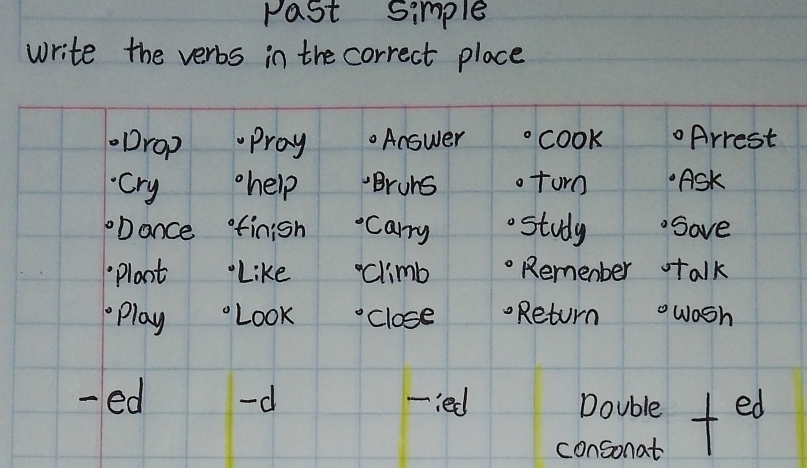 Past Simple
Write the verbs in the correct place
•Drop •Pray •Answer •Cook •Arrest
•Cry •help •Bruhs •Turn •Ask
•Dance •finish •Carry •Study •Save
•Plant •Like •Climb •Remenber •Talk
•Play •Look •Close •Return •Wash
-ed -d -ied Double + ed
consonat